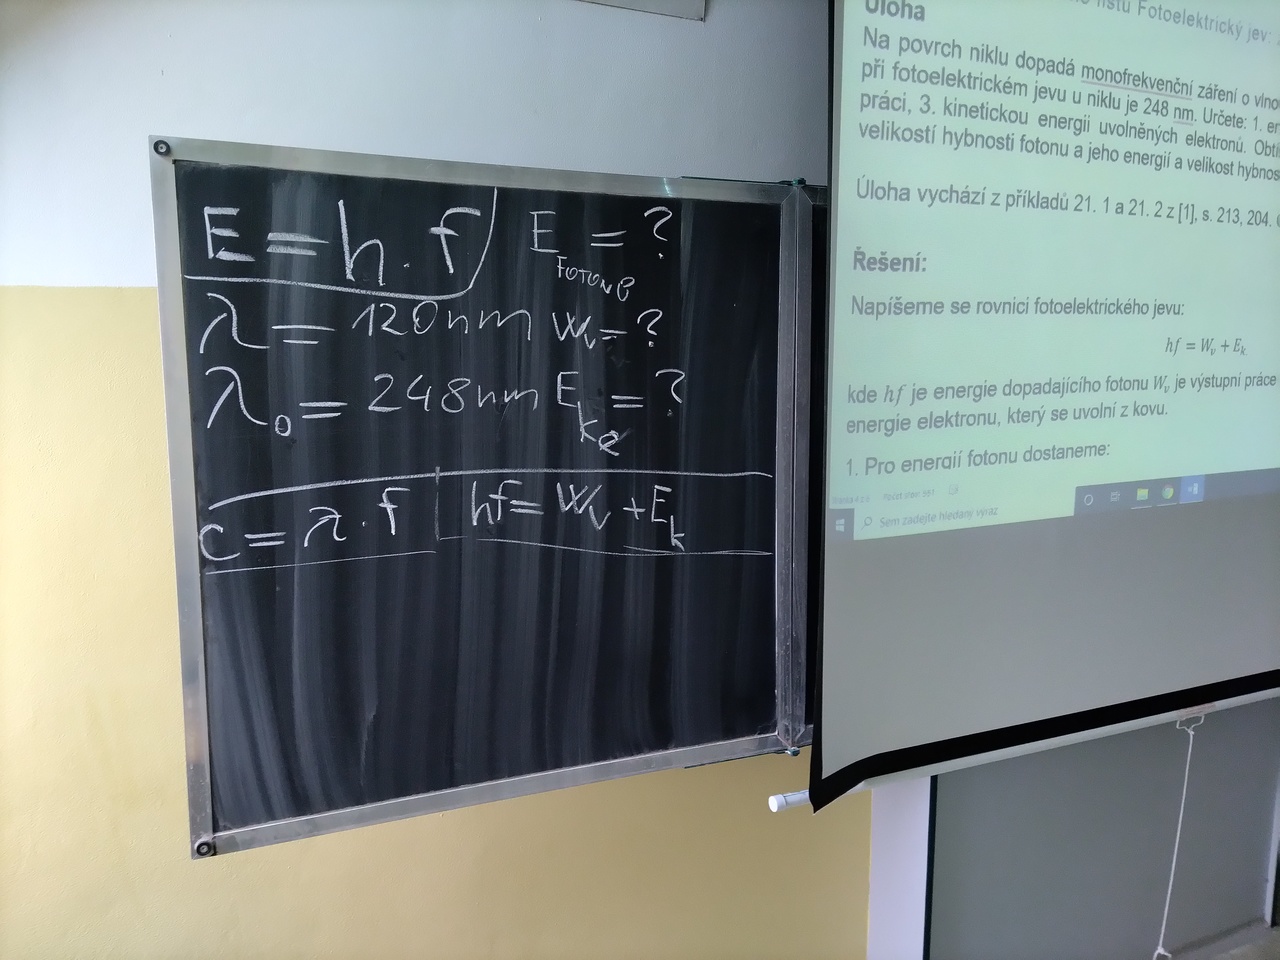 E = h.f
E FOTONŮ = ?
λ = 120nm
Wv = ?
λ0 = 248nm
Eke = ?
c = λ.f
hf = Wv + Ek
listu Fotoelektrický jev:
Úloha
Na povrch niklu dopadá monofrekvenční záření o
při fotoelektrickém jevu u niklu je 248 nm. Určete: 1.
práci, 3. kinetickou energii uvolněných elektronů.
velikostí hybnosti fotonu a jeho energií a velikost
Úloha vychází z příkladů 21. 1 a 21. 2 z [1], s. 213, 204.
Řešení:
Napíšeme se rovnici fotoelektrického jevu:
hf = Wv + Ek
kde hf je energie dopadajícího fotonu Wv je výstupní práce
energie elektronu, který se uvolní z kovu.
1. Pro energií fotonu dostaneme:
Sem zadejte hledaný výraz